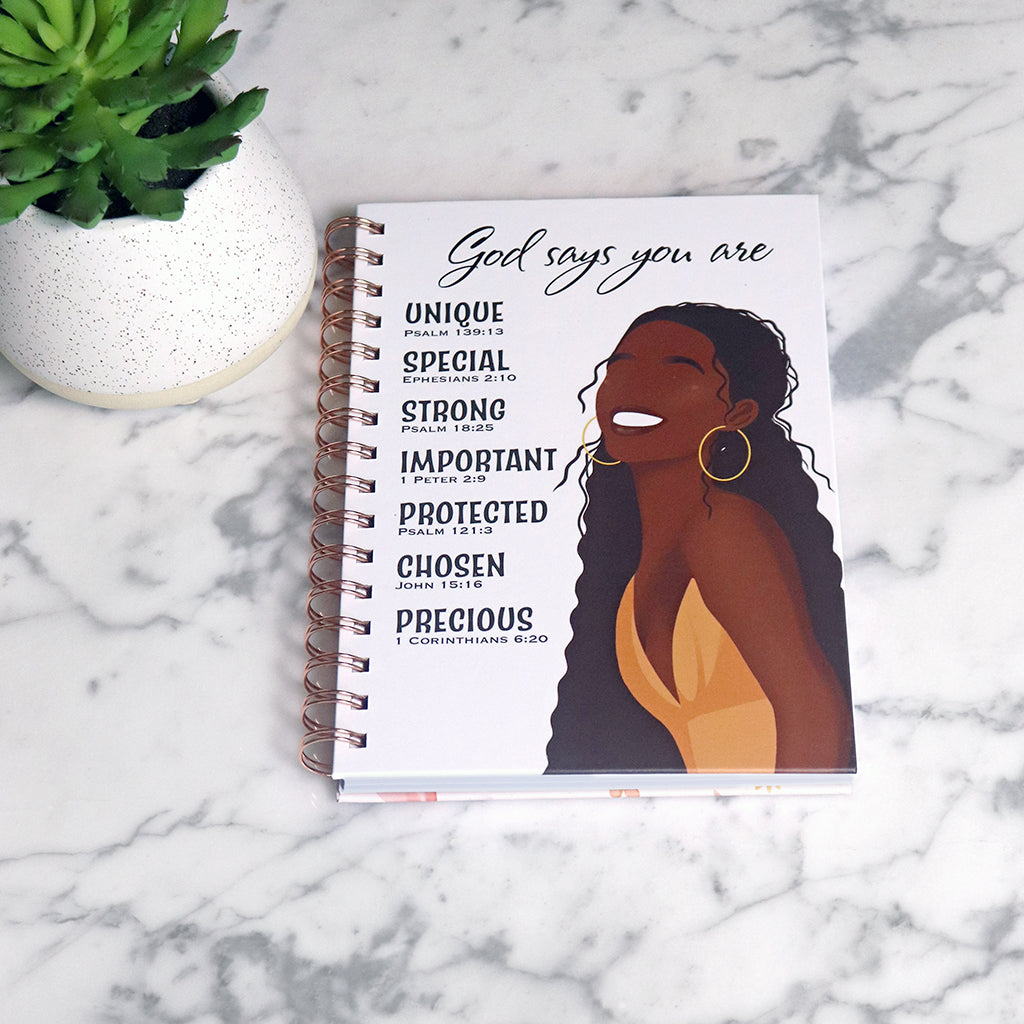 God says you are
UNIQUE
PSALM 139:13
SPECIAL
EPHESIANS 2:10
STRONG
PSALM 18:25
IMPORTANT
1 PETER 2:9
PROTECTED
PSALM 121:3
CHOSEN
JOHN 15:16
PRECIOUS
1 CORINTHIANS 6:20